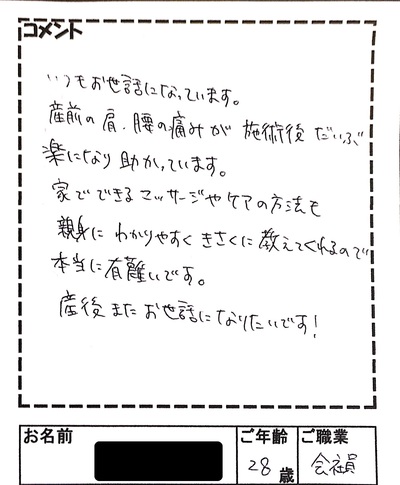 コメント
いつもお世話になっています。
産前の肩、腰の痛みが 施術後 だいぶ
楽になり 助かっています。
家でできるマッサージやケアの方法も
親身に わかりやすく きさくに教えてくれるので
本当に有難いです。
産後またお世話になりたいです!
お名前
ご年齢
ご職業
28歳
会社員